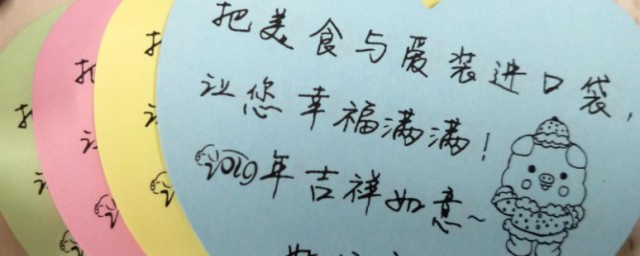 把美食与爱装进口袋,
让您幸福满满!
2019年吉祥如意~